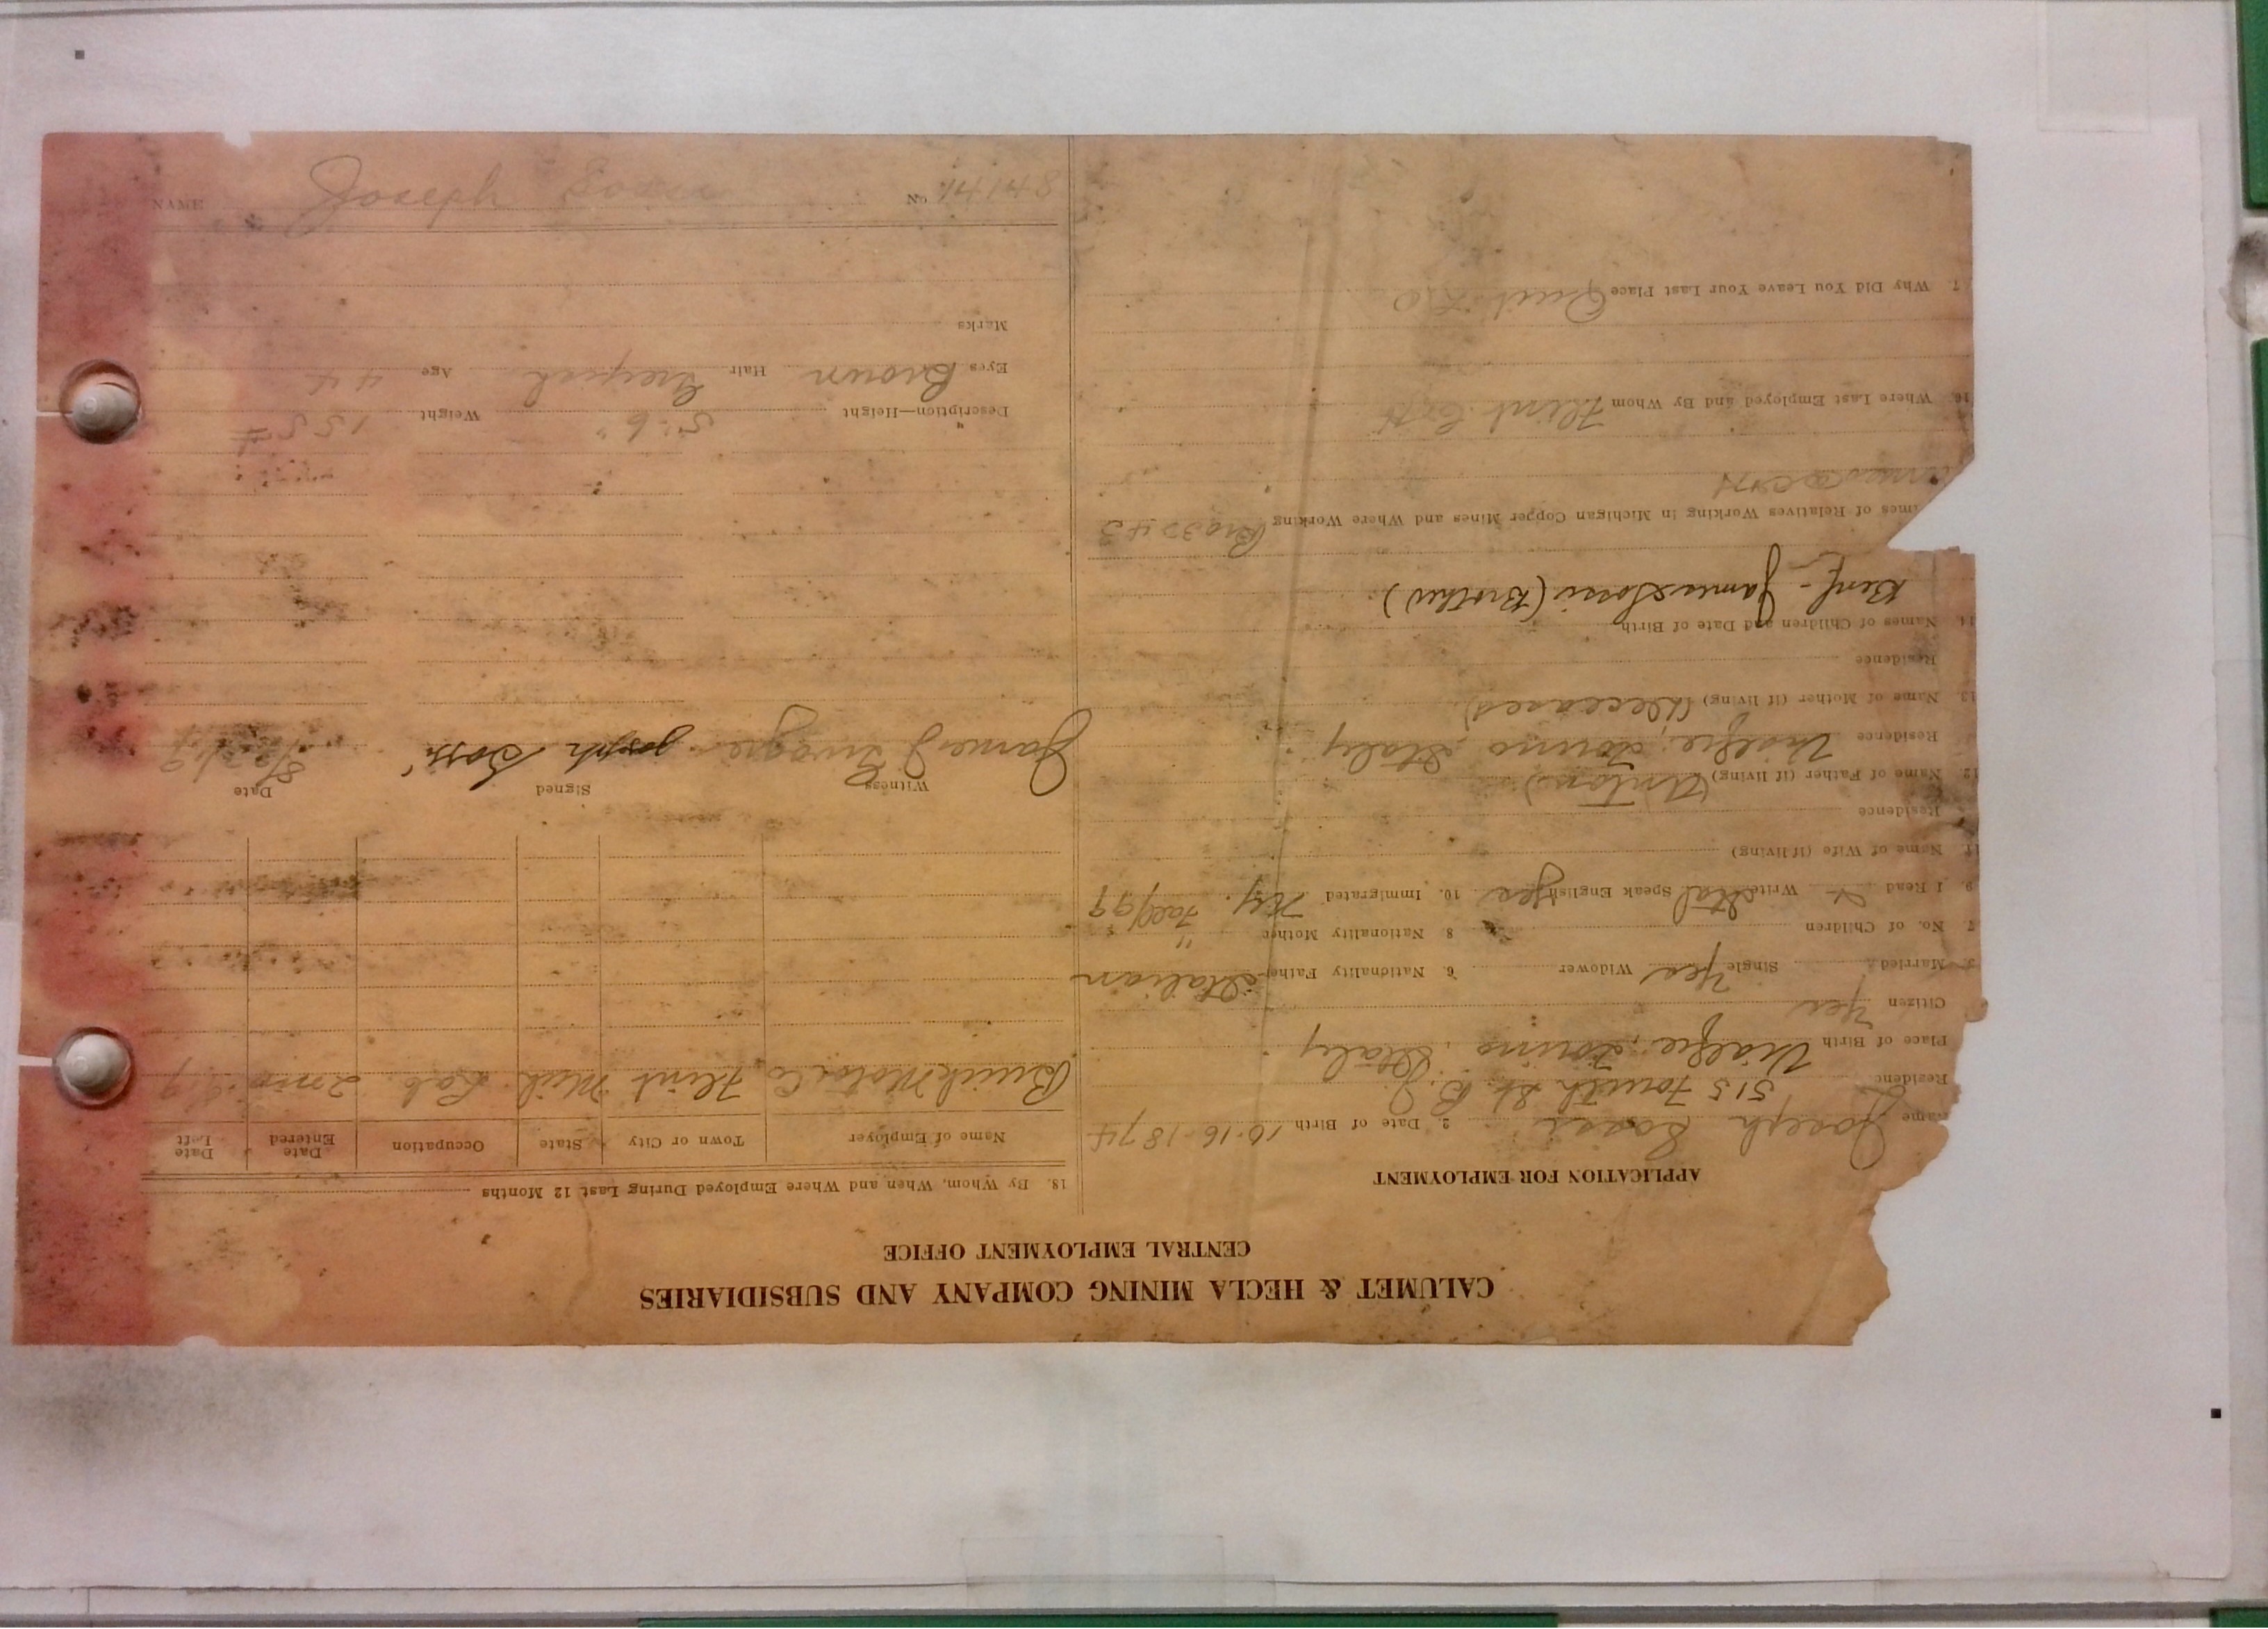 CALUMET & HECLA MINING COMPANY AND SUBSIDIARIES
CENTRAL EMPLOYMENT OFFICE
APPLICATION FOR EMPLOYMENT
Name Joseph 2. Date of Birth 10-16-1874
Residence 515 Fourth St. B.J.
Place of Birth Torino, Italy
Citizen Yes
5. Married Single Yes Widower 6. Nationality Father Italian
7. No. of Children 8 Nationality Mother "
9. I Read Write Ital Speak English Yes 10. Immigrated N.Y. Fall/99
11. Name of Wife (if living)
Residence
12. Name of Father (if living) (Anton)
Residence Torino, Italy
13. Name of Mother (if living) (Deceased)
Residence
14. Names of Children and Date of Birth
Benf - James (Brother)
ames of Relatives Working in Michigan Copper Mines and Where Working
C&H
16. Where Last Employed and By Whom Flint
7. Why Did You Leave Your Last Place Quit
18. By Whom, When and Where Employed During Last 12 Months
Name of Employer Town or City State Occupation Date Entered Date Left
Buick Motor Co. Flint Mich. Lab. 2 mo
Witness Signed Date
James Joseph
Description—Height 5' 6" Weight 155#
Eyes Brown Hair Greyish Age 44
Marks
NAME Joseph No. 14148